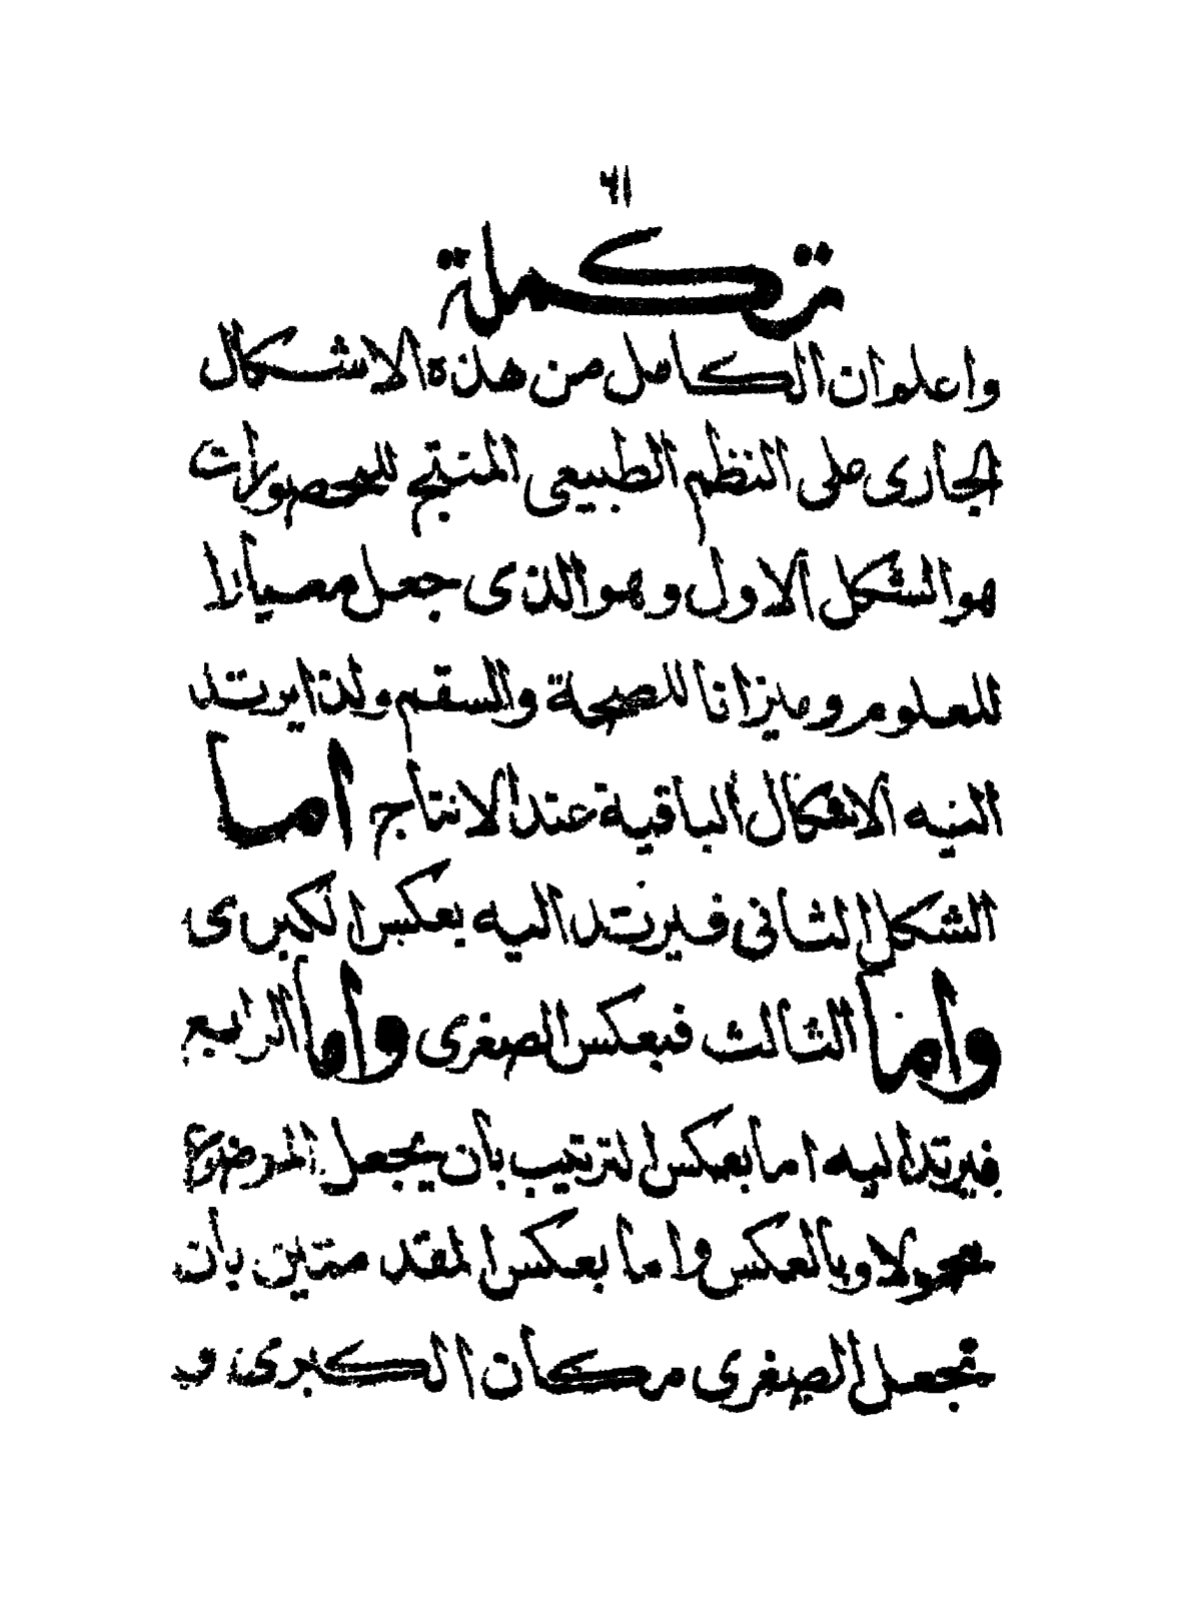 ٦١
تكملة
واعلم ان الكامل من هذه الاشكال
الجارى على النظم الطبيعى المنتج للمحصورات
هو الشكل الاول وهو الذى جعل معيارا
للعلوم وميزانا للصحة والسقم ولذا يرتد
اليه الاشكال الباقية عند الانتاج اما
الشكل الثانى فيرتد اليه بعكس الكبرى
واما الثالث فبعكس الصغرى واما الرابع
فيرتد اليه اما بعكس الترتيب بأن يجعل الموضوع
محمولا وبالعكس واما بعكس المقدمتين بأن
تجعل الصغرى مكان الكبرى و